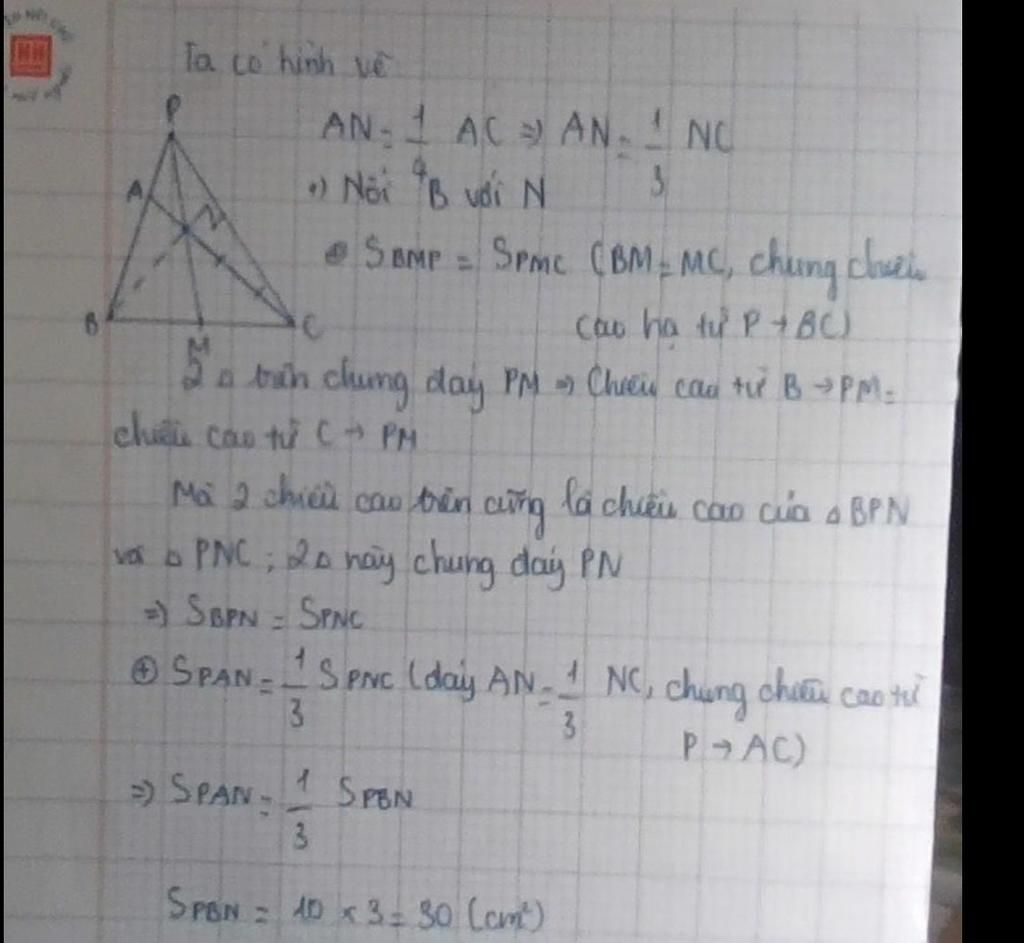 Ta có hình vẽ
P
AN = 1/4 AC ⇒ AN = 1/3 NC
A
N
+) Nối B với N
⊕ SBMP = SPMC (BM = MC, chung chiều
B
C
cao hạ từ P → BC)
M
2 Δ trên chung đáy PM ⇒ Chiều cao từ B → PM =
chiều cao từ C → PM
Mà 2 chiều cao trên cũng là chiều cao của Δ BPN
và Δ PNC ; 2Δ này chung đáy PN
⇒ SBPN = SPNC
⊕ SPAN = 1/3 SPNC (đáy AN = 1/3 NC, chung chiều cao từ
P → AC)
⇒ SPAN = 1/3 SPBN
SPBN = 10 × 3 = 30 (cm²)